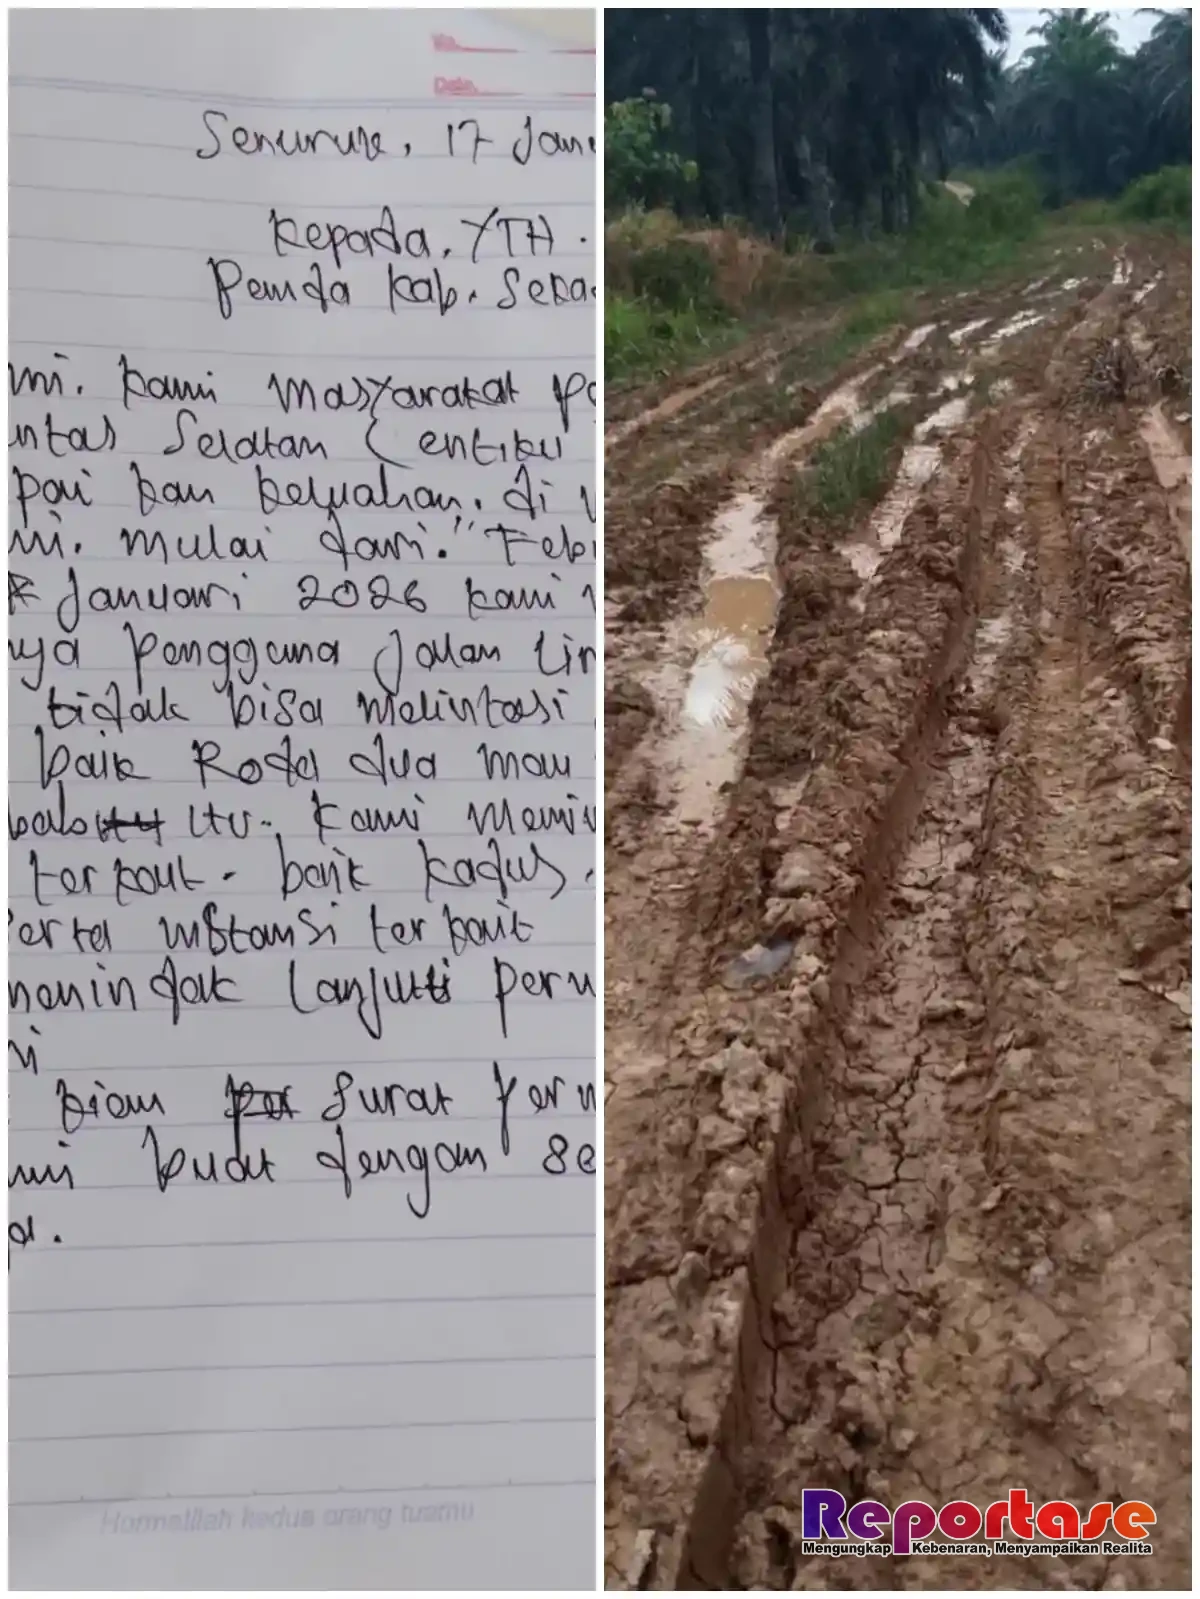 No.
Date.
Senuruk, 17 Jan
Kepada, YTH.
Pemda Kab. Seka
ini. Kami Masyarakat Pe
intas Selatan (entiku
pai kan keluahan. di
ini. mulai dari. "Feb
Januari 2026 kami
ya Pengguna Jalan Lin
tidak bisa melintasi
baik Roda dua mau
bab itu. kami Memin
terkait. baik Kadus.
erta instansi terkait
menindak lanjuti perm
ni
kian surat perm
mi buat dengan se
a.
Hormatilah kedua orang tuamu
Reportase
Mengungkap Kebenaran, Menyampaikan Realita